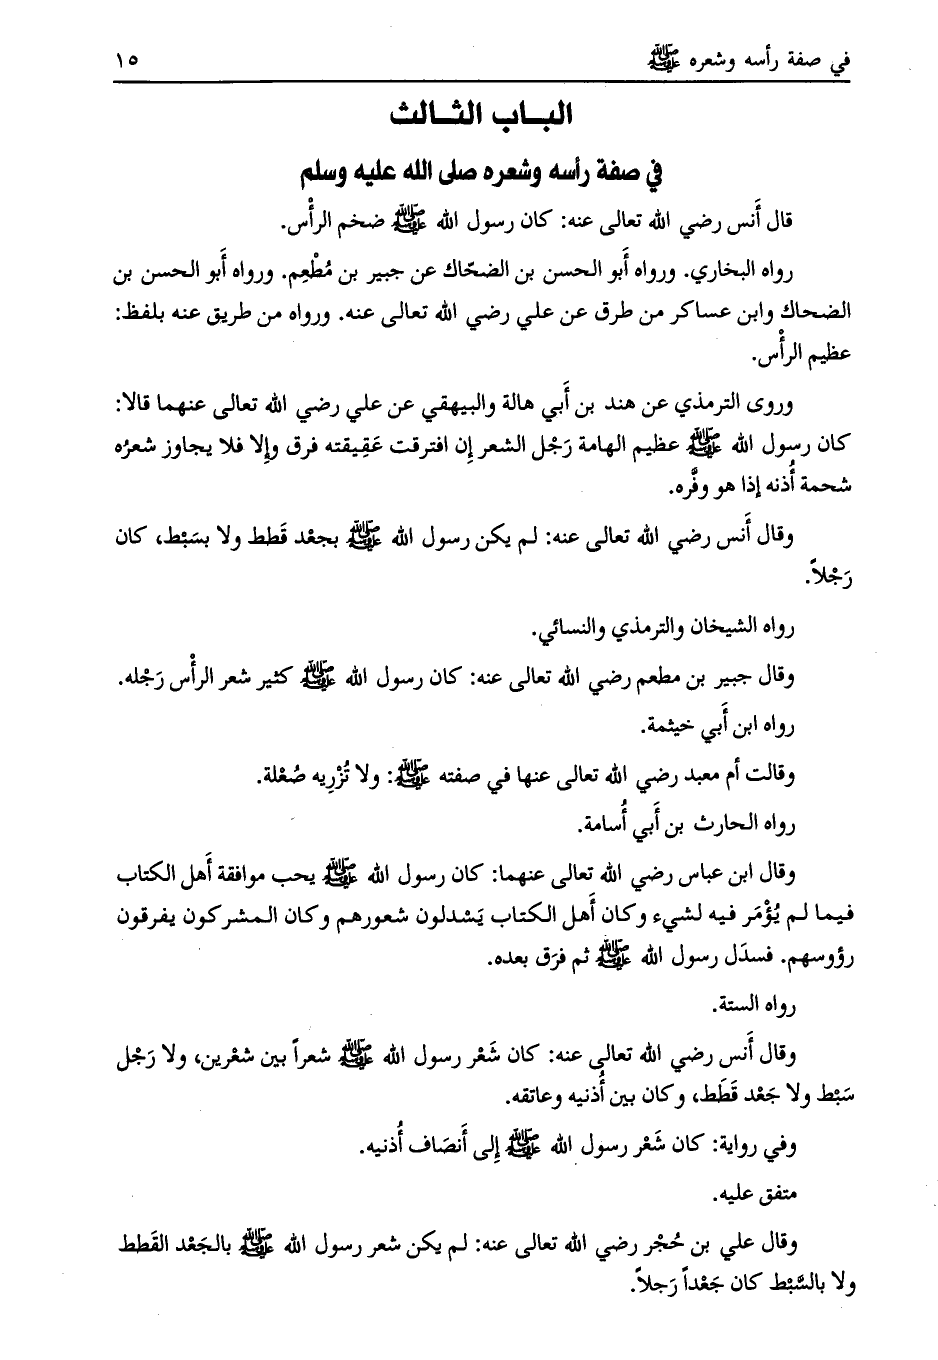 في صفة رأسه وشعره ﷺ ١٥
البــاب الثــالث
في صفة رأسه وشعره صلى الله عليه وسلم
قال أَنس رضي الله تعالى عنه: كان رسول الله ﷺ ضخم الرأْس.
رواه البخاري. ورواه أَبو الحسن بن الضحّاك عن جبير بن مُطْعِم. ورواه أَبو الحسن بن
الضحاك وابن عساكر من طرق عن علي رضي الله تعالى عنه. ورواه من طريق عنه بلفظ:
عظيم الرأْس.
وروى الترمذي عن هند بن أَبي هالة والبيهقي عن علي رضي الله تعالى عنهما قالا:
كان رسول الله ﷺ عظيم الهامة رَجْل الشعر إن افترقت عَقِيقته فرق وإلا فلا يجاوز شعرُه
شحمة أُذنه إذا هو وفَّره.
وقال أَنس رضي الله تعالى عنه: لم يكن رسول الله ﷺ بجعْد قَطط ولا بسَبْط، كان
رَجْلاً.
رواه الشيخان والترمذي والنسائي.
وقال جبير بن مطعم رضي الله تعالى عنه: كان رسول الله ﷺ كثير شعر الرأْس رَجْله.
رواه ابن أَبي خيثمة.
وقالت أم معبد رضي الله تعالى عنها في صفته ﷺ: ولا تُزْرِيه صُعْلة.
رواه الحارث بن أَبي أُسامة.
وقال ابن عباس رضي الله تعالى عنهما: كان رسول الله ﷺ يحب موافقة أَهل الكتاب
فيما لم يُؤْمَر فيه لشيء وكان أَهل الكتاب يَسْدلون شعورهم وكان المشركون يفرقون
رؤوسهم. فسدَل رسول الله ﷺ ثم فرَق بعده.
رواه الستة.
وقال أَنس رضي الله تعالى عنه: كان شَعْر رسول الله ﷺ شعراً بين شعْرين، ولا رَجْل
سَبْط ولا جَعْد قَطَط، وكان بين أُذنيه وعاتقه.
وفي رواية: كان شَعْر رسول الله ﷺ إِلى أَنصَاف أُذنيه.
متفق عليه.
وقال علي بن حُجْر رضي الله تعالى عنه: لم يكن شعر رسول الله ﷺ بالجَعْد القَطط
ولا بالسَّبْط كان جَعْداً رَجلاً.